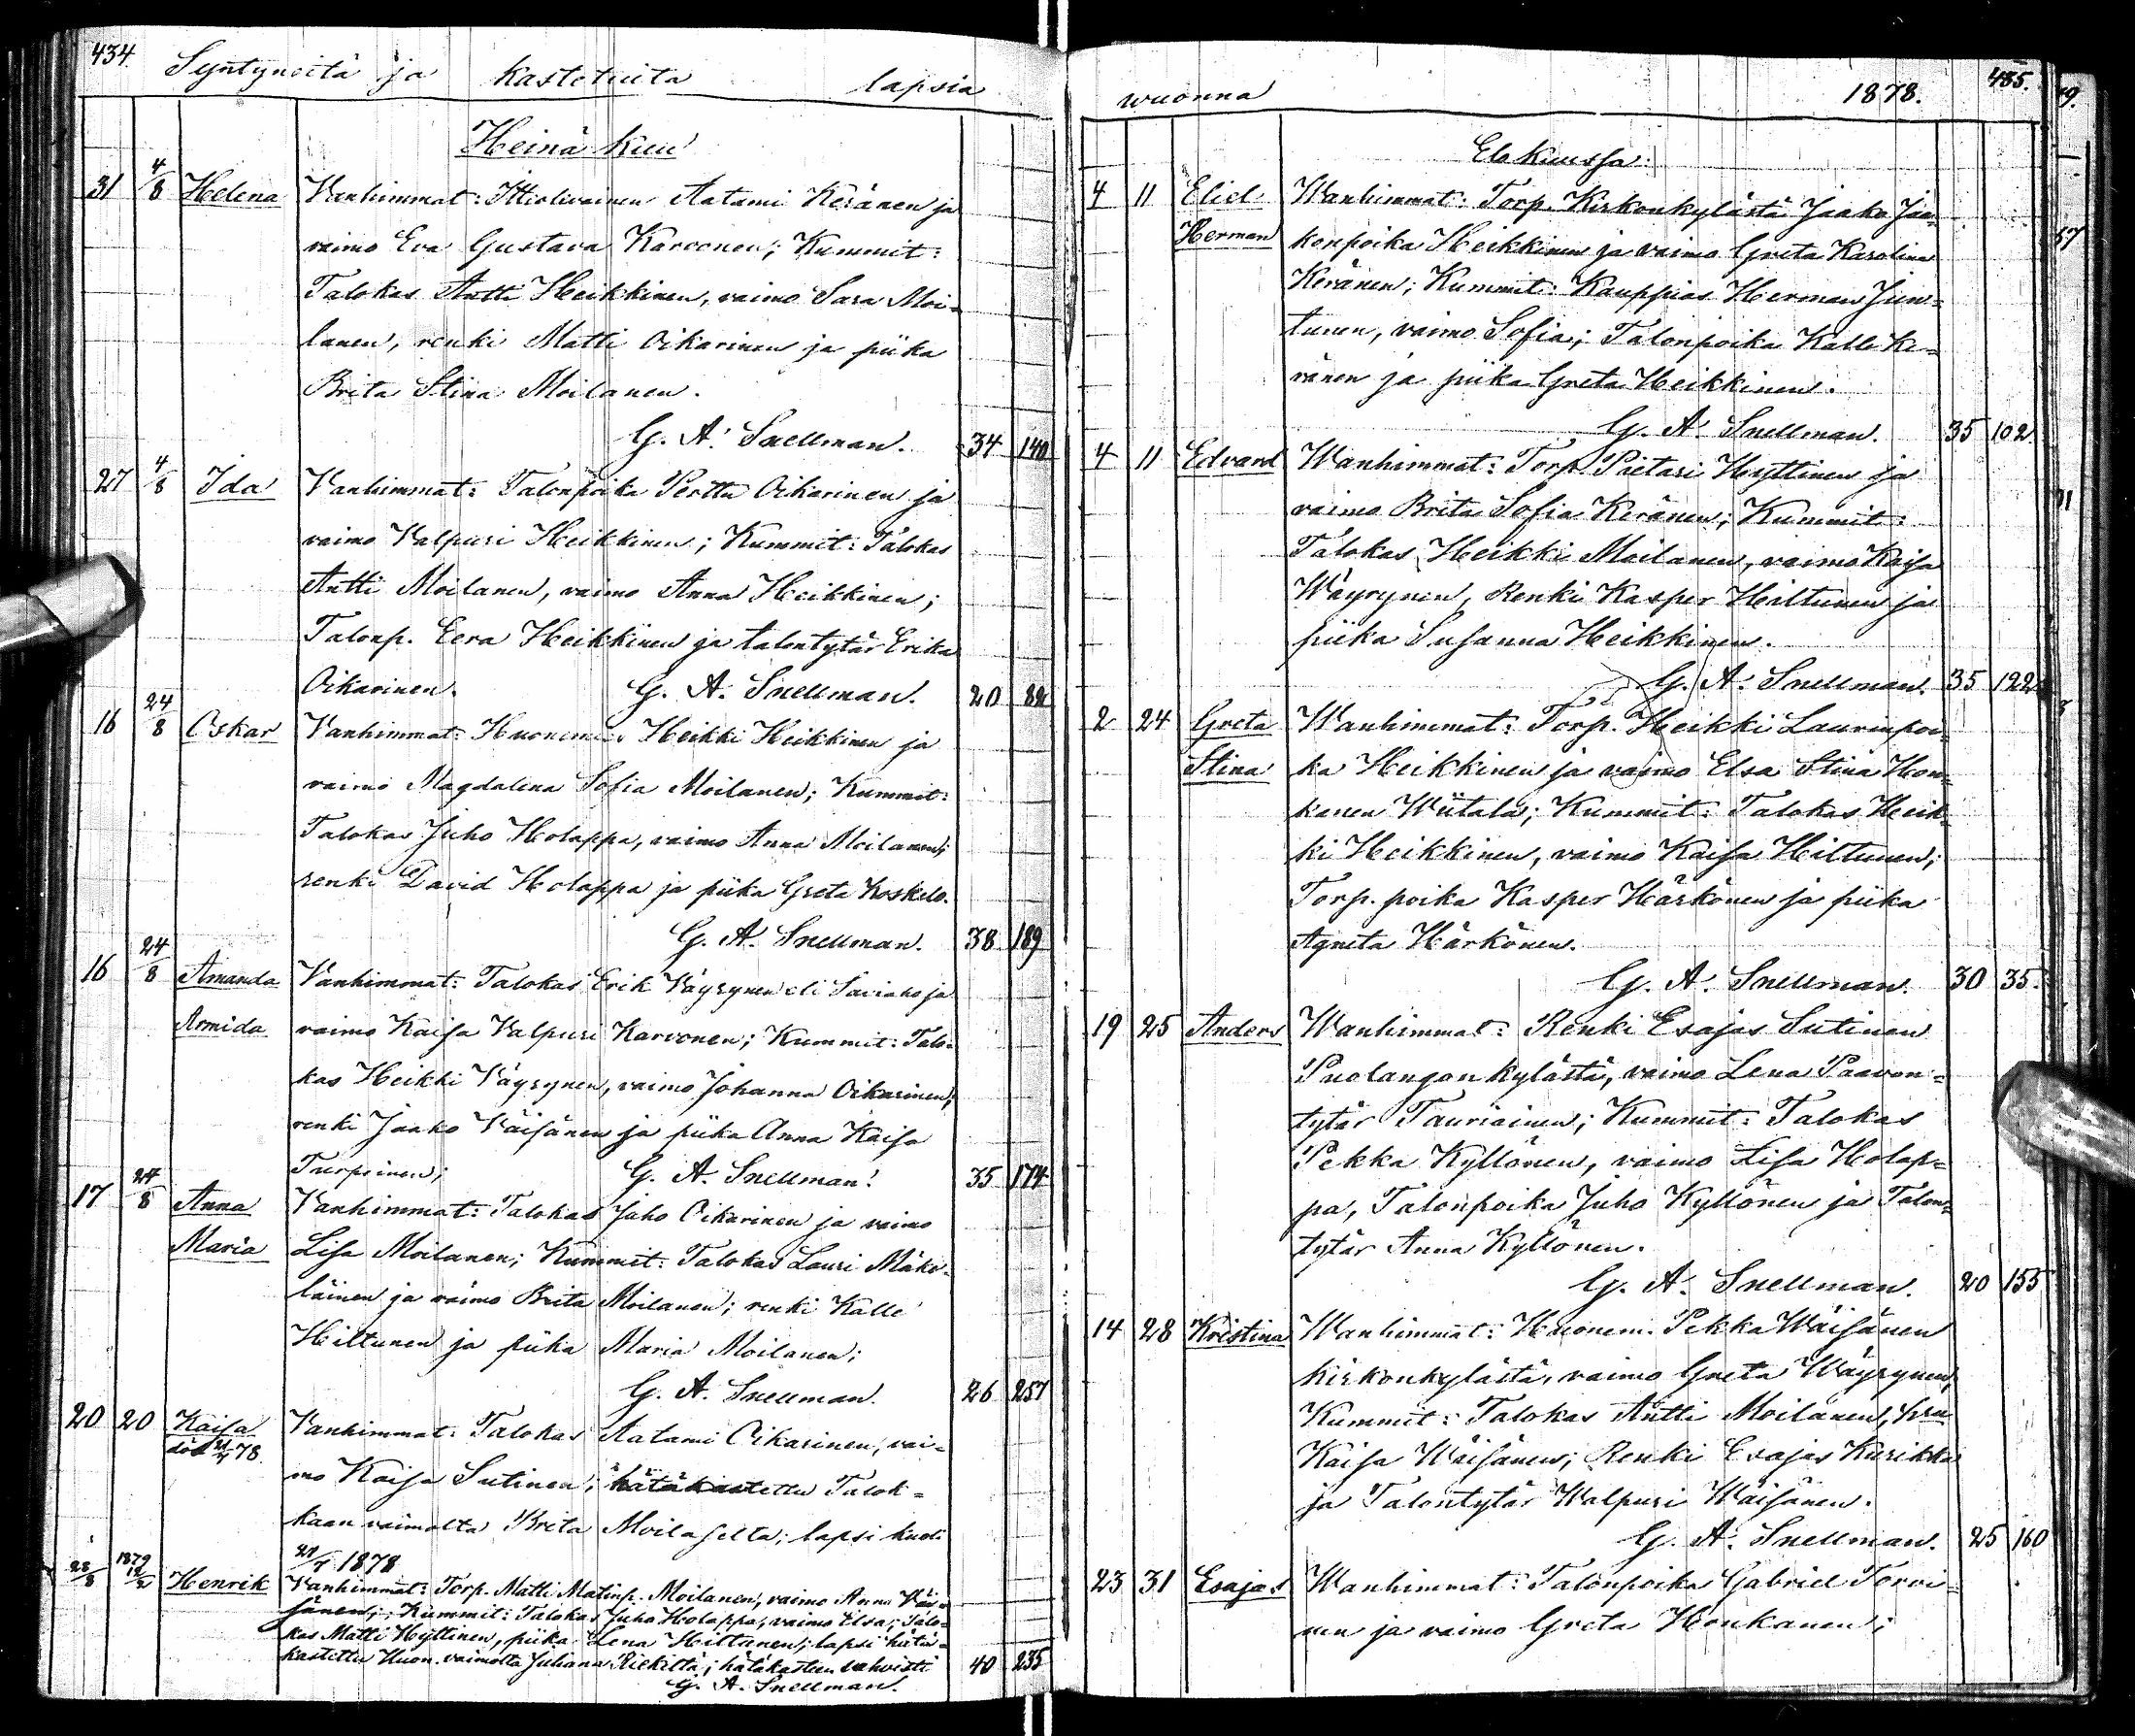 434.
Syntyneitä ja kastetuita lapsia
Heinä kuu
31 4/8 Helena Vanhimmat: Ittiolivainen Aatami Keränen ja
vaimo Eva Gustava Karvonen; Kummit:
Talokas Antti Heikkinen, vaimo Sara Moi-
lanen, renki Matti Oikarinen ja piika
Brita Stina Moilanen.
G. A. Snellman. 34 140
27 4/8 Ida Vanhimmat: Talonpoika Perttu Oikarinen ja
vaimo Valpuri Heikkinen; Kummit: Talokas
Antti Moilanen, vaimo Anna Heikkinen;
Talonp. Eera Heikkinen ja talontytär Erika
Oikarinen. G. A. Snellman. 20 82
16 24/8 Oskar Vanhimmat: Huonemies Heikki Heikkinen ja
vaimo Magdalena Sofia Moilanen; Kummit:
Talokas Juho Holappa, vaimo Anna Moilanen;
renki David Holappa ja piika Greta Koskelo.
G. A. Snellman. 38 189
16 24/8 Amanda Vanhimmat: Talokas Erik Väyrynen eli Saviaho ja
Armida vaimo Kaisa Valpuri Karvonen; Kummit: Talo-
kas Heikki Väyrynen, vaimo Johanna Oikarinen;
renki Jaako Väisänen ja piika Anna Kaisa
Turpeinen; G. A. Snellman. 35 174
17 24/8 Anna Vanhimmat: Talokas Juho Oikarinen ja vaimo
Maria Lisa Moilanen; Kummit: Talokas Lauri Mäke-
läinen ja vaimo Brita Moilanen; renki Kalle
Hiltunen ja piika Maria Moilanen;
G. A. Snellman. 26 257
20 20 Kaisa Vanhimmat: Talokas Aatami Oikarinen, vai-
död 21/7 78. mo Kaisa Sutinen; hätäkastettu Talok-
kaan vaimolta Brita Moilaselta; lapsi kuoli
21/7 1878
28/8 1879 12/2 Henrik Vanhimmat: Torp. Matti Matinp. Moilanen, vaimo Anna Väi-
sänen; Kummit: Talokas Juho Holappa, vaimo Elsa; Talo-
kas Matti Hyttinen, piika Lena Hiltunen; lapsi hätä-
kastettu Huon. vaimolta Juliana Riekiltä; hätäkasteen vahvisti 40 235
G. A. Snellman.
wuonna 1878. 435.
Elokuussa
4 11 Eliel Wanhimmat: Torp. Kirkonkylästä Jaako Jaa-
Herman konpoika Heikkinen ja vaimo Greta Karolina
Keränen; Kummit: Kauppias Herman Jun-
tunen, vaimo Sofia; Talonpoika Kalle Ke-
ränen ja piika Greta Heikkinen.
G. A. Snellman. 35 102.
4 11 Edvard Wanhimmat: Torp. Pietari Hyttinen ja
vaimo Brita Sofia Keränen; Kummit:
Talokas Heikki Moilanen, vaimo Kaisa
Wäyrynen, Renki Kasper Hiltunen ja
piika Susanna Heikkinen.
G. A. Snellman. 35 122
2 24 Greta Wanhimmat: Torp. Heikki Laurinpoi-
Stina ka Heikkinen ja vaimo Elsa Stina Hon-
kanen Wiitala; Kummit: Talokas Heik-
ki Heikkinen, vaimo Kaisa Hiltunen;
Torp. poika Kasper Härkönen ja piika
Agneta Härkönen.
G. A. Snellman. 30 35.
19 25 Anders Wanhimmat: Renki Esajas Sutinen
Puolangan kylästä, vaimo Lena Paavon-
tytär Tauriainen; Kummit: Talokas
Pekka Kyllönen, vaimo Lisa Holap-
pa, Talonpoika Juho Kyllönen ja Talon-
tytär Anna Kyllönen.
G. A. Snellman. 20 155
14 28 Kristina Wanhimmat: Huonem. Pekka Wäisänen
kirkonkylästä, vaimo Greta Wäyrynen;
Kummit: Talokas Antti Moilanen, hru
Kaisa Wäisänen; Renki Esajas Kurikka
ja Talontytär Walpuri Wäisänen.
G. A. Snellman. 25 160
23 31 Esajas Wanhimmat: Talonpoika Gabriel Torvi-
nen ja vaimo Greta Honkanen;